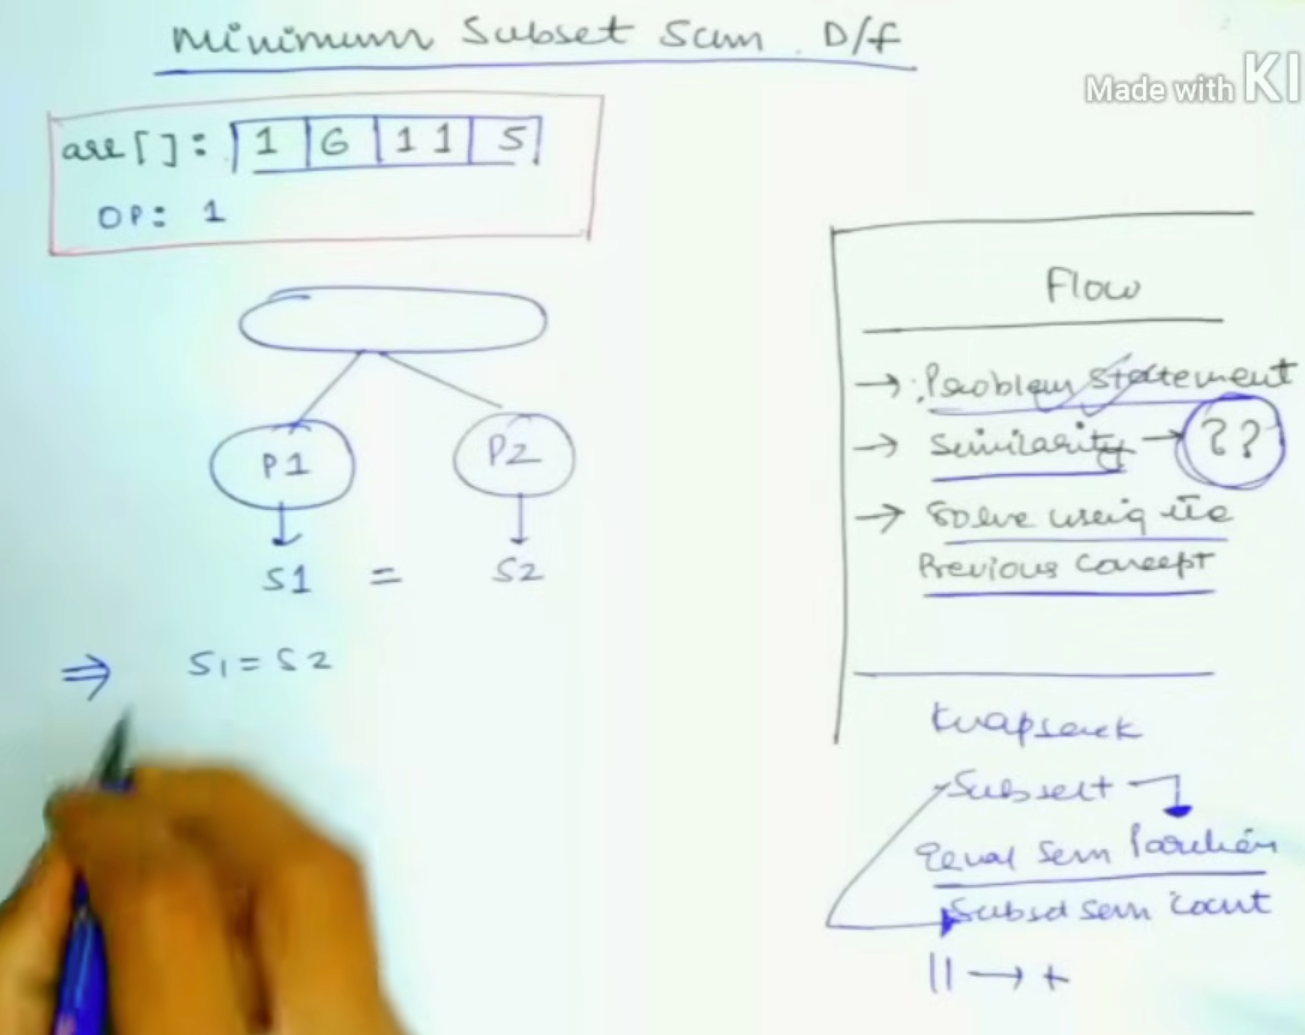 Minimum Subset Sum D/f
Made with KI
arr[]: 1 6 11 5
OP: 1
P1 P2
S1 = S2
⇒ S1 = S2
Flow
→ Problem Statement
→ Similarity → ??
→ Solve using the
Previous Concept
Knapsack
Subset
Equal Sum Partition
Subset Sum Count
|| → +